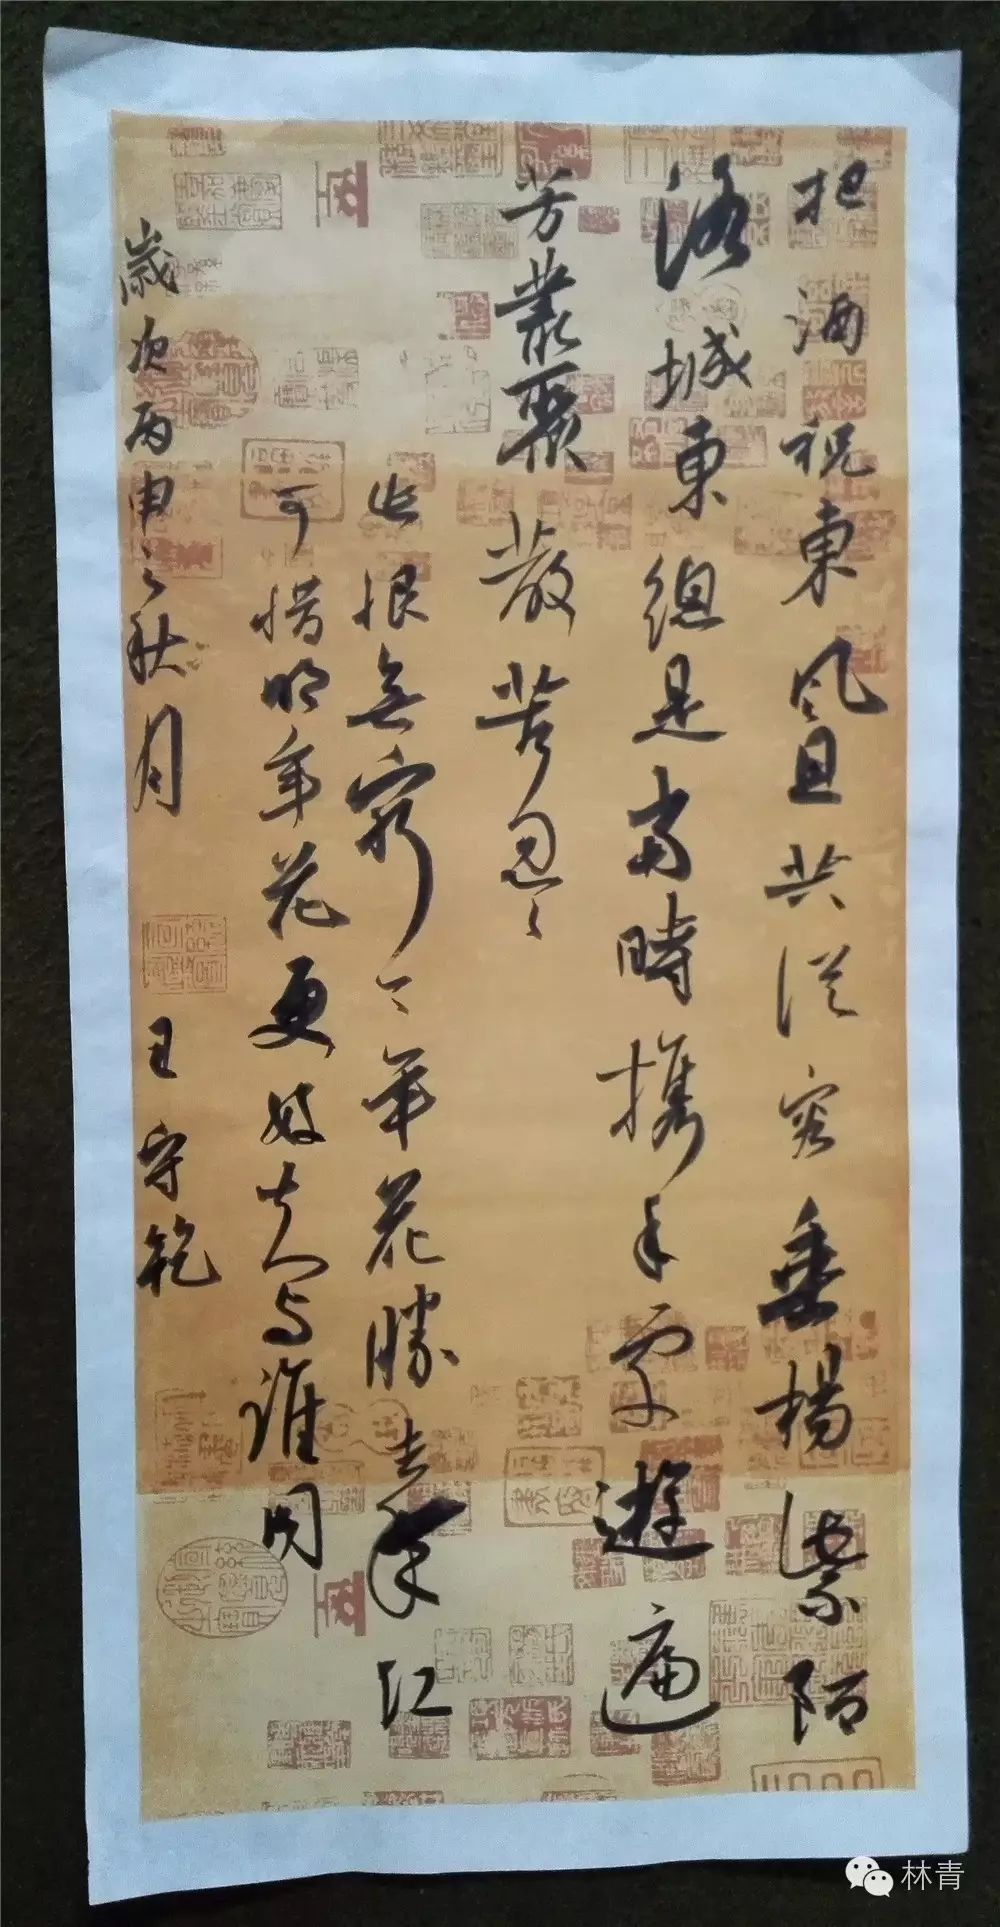 把酒祝東風且共從容垂楊紫陌
洛城東總是當時攜手處遊遍
芳叢聚散苦怱々
此恨無窮今年花勝去年江
可惜明年花更好知与誰同
歲次丙申之秋月 王守乾
林青